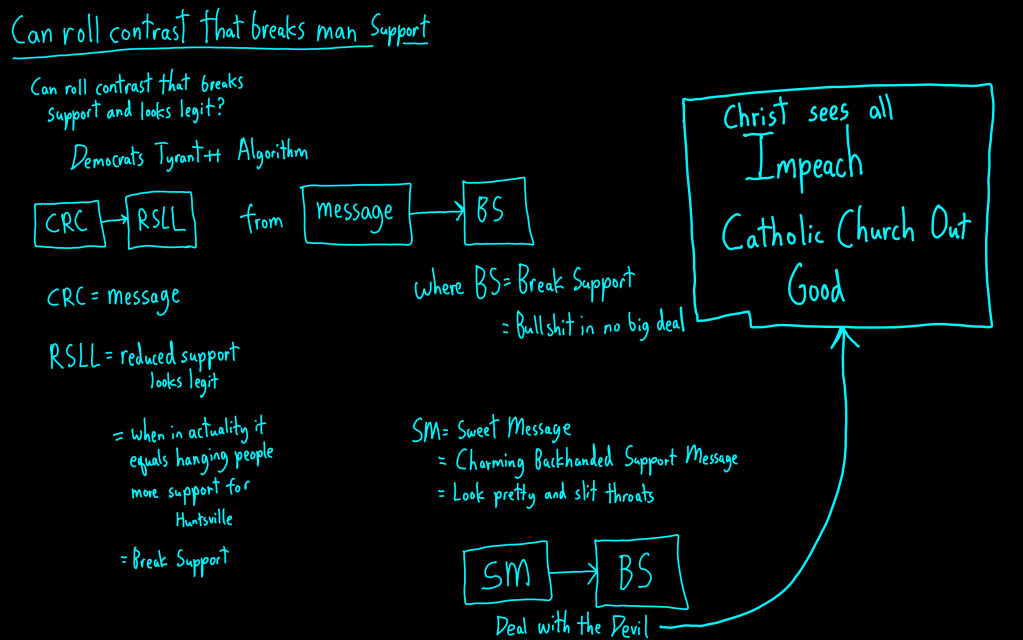 Can roll contrast that breaks man Support
Can roll contrast that breaks
support and looks legit?
Democrats Tyrant++ Algorithm
CRC
RSLL
from
message
BS
CRC = message
where BS = Break Support
= Bullshit in no big deal
RSLL = reduced support
looks legit
= when in actuality it
equals hanging people
more support for
Huntsville
= Break Support
SM = Sweet Message
= Charming Backhanded Support Message
= Look pretty and slit throats
SM
BS
Deal with the Devil
Christ sees all
Impeach
Catholic Church Out
Good